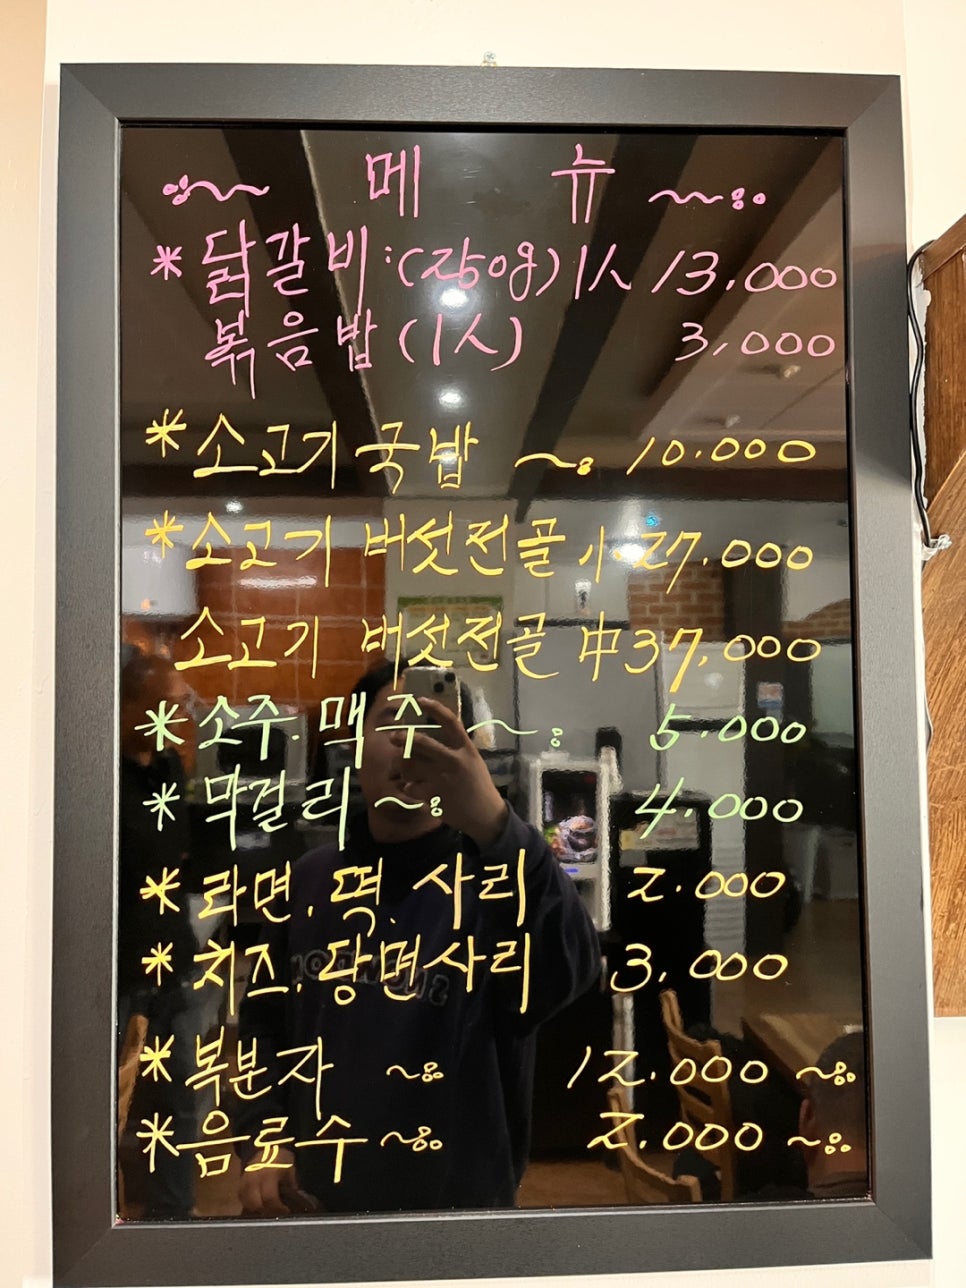 메뉴
* 닭갈비:(장어) 1人 13,000
볶음밥(1人) 3,000
* 소고기국밥 ~ 10.000
* 소고기 버섯전골 小 27.000
소고기 버섯전골 中 37,000
* 소주.맥주 ~ 5.000
* 막걸리 ~ 4.000
* 라면.떡.사리 2.000
* 치즈.당면사리 3,000
* 복분자 ~ 12.000 ~
* 음료수 ~ 2.000 ~